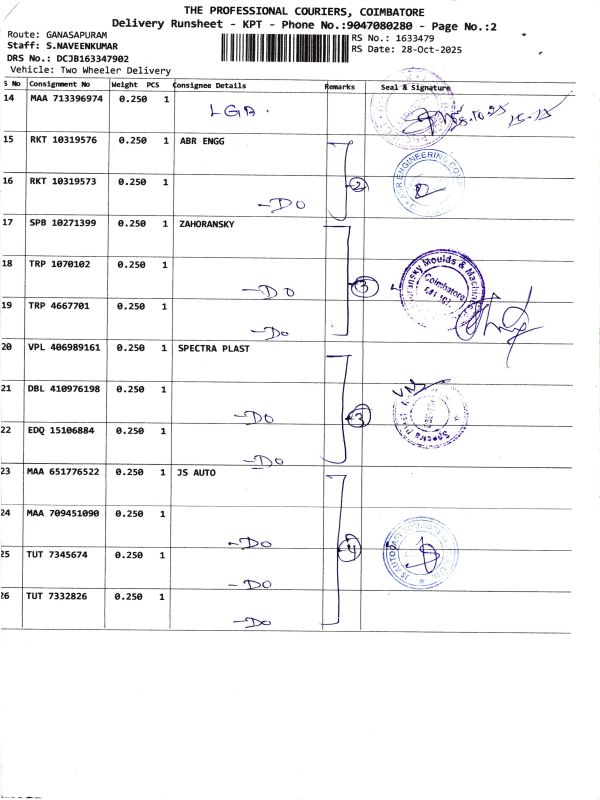 THE PROFESSIONAL COURIERS, COIMBATORE
Delivery Runsheet - KPT - Phone No.:9047080280 - Page No.:2
Route: GANASAPURAM
RS No.: 1633479
Staff: S.NAVEENKUMAR
RS Date: 28-Oct-2025
DRS No.: DCJB163347902
Vehicle: Two Wheeler Delivery
S No Consignment No Weight PCS Consignee Details Remarks Seal & Signature
14 MAA 713396974 0.250 1 LGA. 28.10.25 15-15
15 RKT 10319576 0.250 1 ABR ENGG
16 RKT 10319573 0.250 1 -DO 2 ABR ENGINEERING
17 SPB 10271399 0.250 1 ZAHORANSKY
18 TRP 1070102 0.250 1 -DO 3 Moulds & Machines Coimbatore
19 TRP 4667701 0.250 1 -DO
20 VPL 406989161 0.250 1 SPECTRA PLAST
21 DBL 410976198 0.250 1 -DO 3 Spectra
22 EDQ 15106884 0.250 1 -DO
23 MAA 651776522 0.250 1 JS AUTO
24 MAA 709451090 0.250 1 -DO 4 JS AUTOCAST
25 TUT 7345674 0.250 1 -DO
26 TUT 7332826 0.250 1 -DO